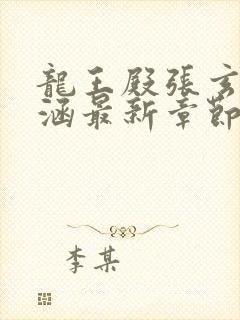 龍王殿張玄
涵最新章節
李某